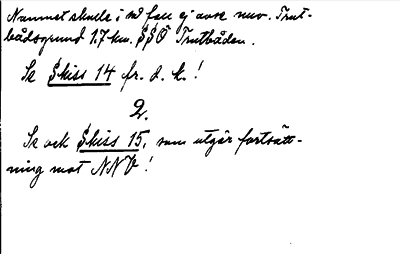 Namnet skulle i så fall ej avse nuv. Trut-
bådsgrund 1.7 km. SSO Trutbåden.
Se Skiss 14 fr. d. k.!
2.
Se ock Skiss 15, som utgör fortsätt-
ning mot NNV!